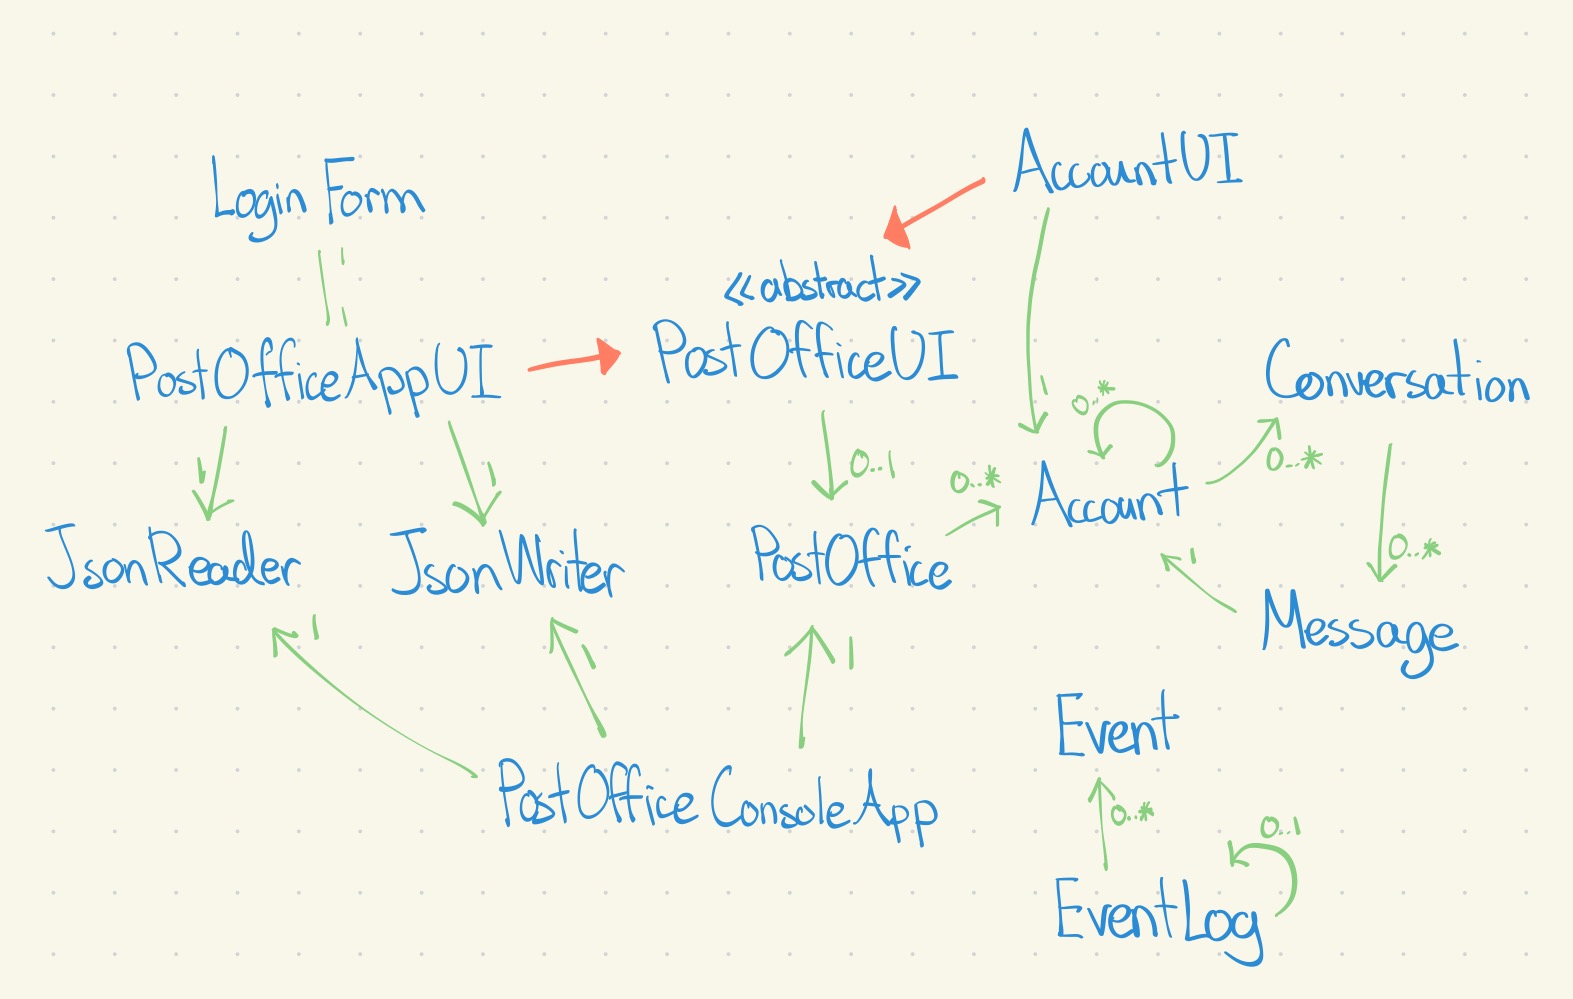 AccountUI
Login Form
1
<<abstract>>
PostOfficeUI
PostOfficeAppUI
1
Conversation
1
0..*
0..1
0..*
0..*
1
1
Account
JsonReader
JsonWriter
PostOffice
1
0..*
Message
1
1
1
Event
PostOffice ConsoleApp
0..*
0..1
EventLog